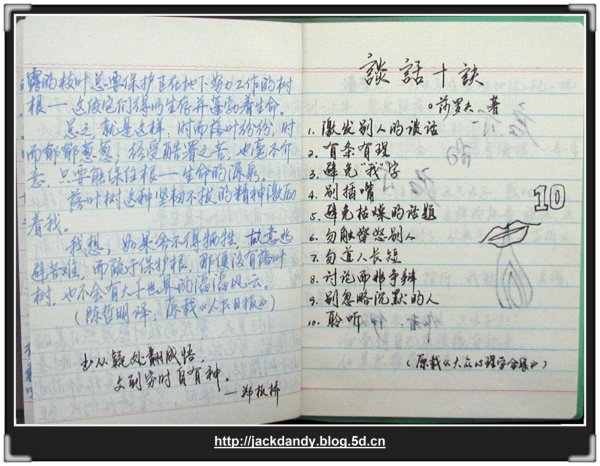 露的枝叶总要保护自在地下努力工作的树
根——这使它们得以生存并蓬勃着生命。
总之就是这样，时而落叶纷纷，时
而郁郁葱葱，经受酷暑之苦，也毫不介
意，只要能保住根——生命的源泉。
落叶树这种坚韧不拔的精神激励
着我。
我想，如果舍不得牺牲，
而疏于保护根，那便没有落叶
树，也不会有大千世界的滔滔风云。
（陈哲明译，原载《人民日报》）
书从疑处翻成悟，
文到穷时自有神。
——郑板桥
談話十訣
·莎罗夫 著
1. 激发别人的谈话
2. 有条有理
3. 避免“我”字
4. 别插嘴
5. 避免枯燥的话题
6. 勿触督怒别人
7. 勿道人长短
8. 讨论而非争辩
9. 别忽略沉默的人
10. 聆听
10
（原载《大众心理学全集》）
http://jackdandy.blog.5d.cn